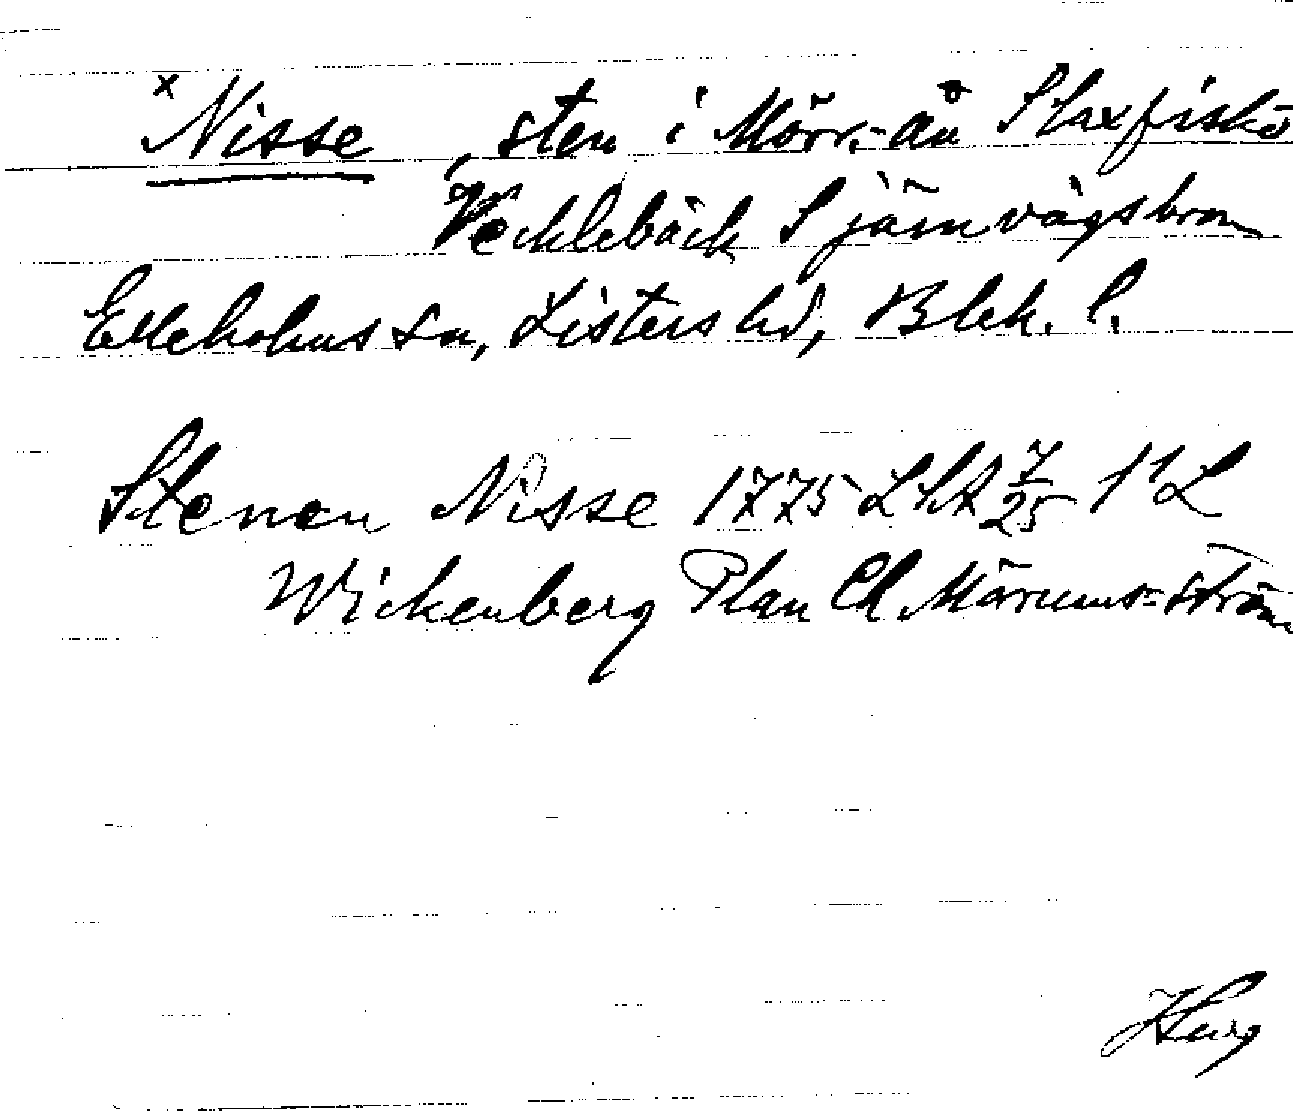 x Nisse, sten i Mörr.-ån S laxfiske
Vecklebäck S järnvägsbron
Elleholms sn, Listers hd, Blek. l.
Stenen Nisse 1775 LSA 7/25 1¹ L
Wickenberg Plan Ch Mörrums-ström